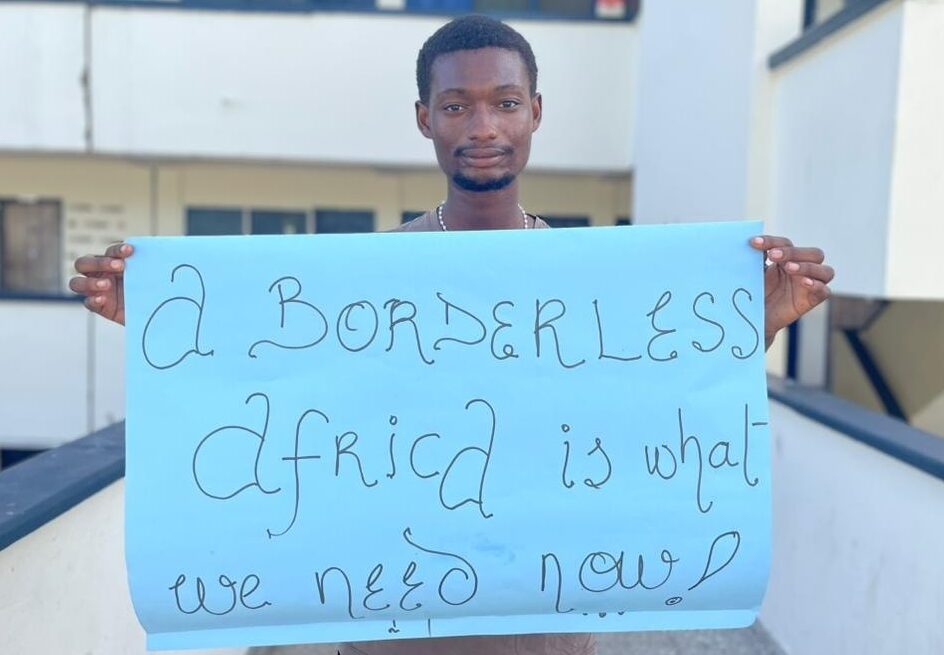 a BORDERLESS
africa is what
we need now!